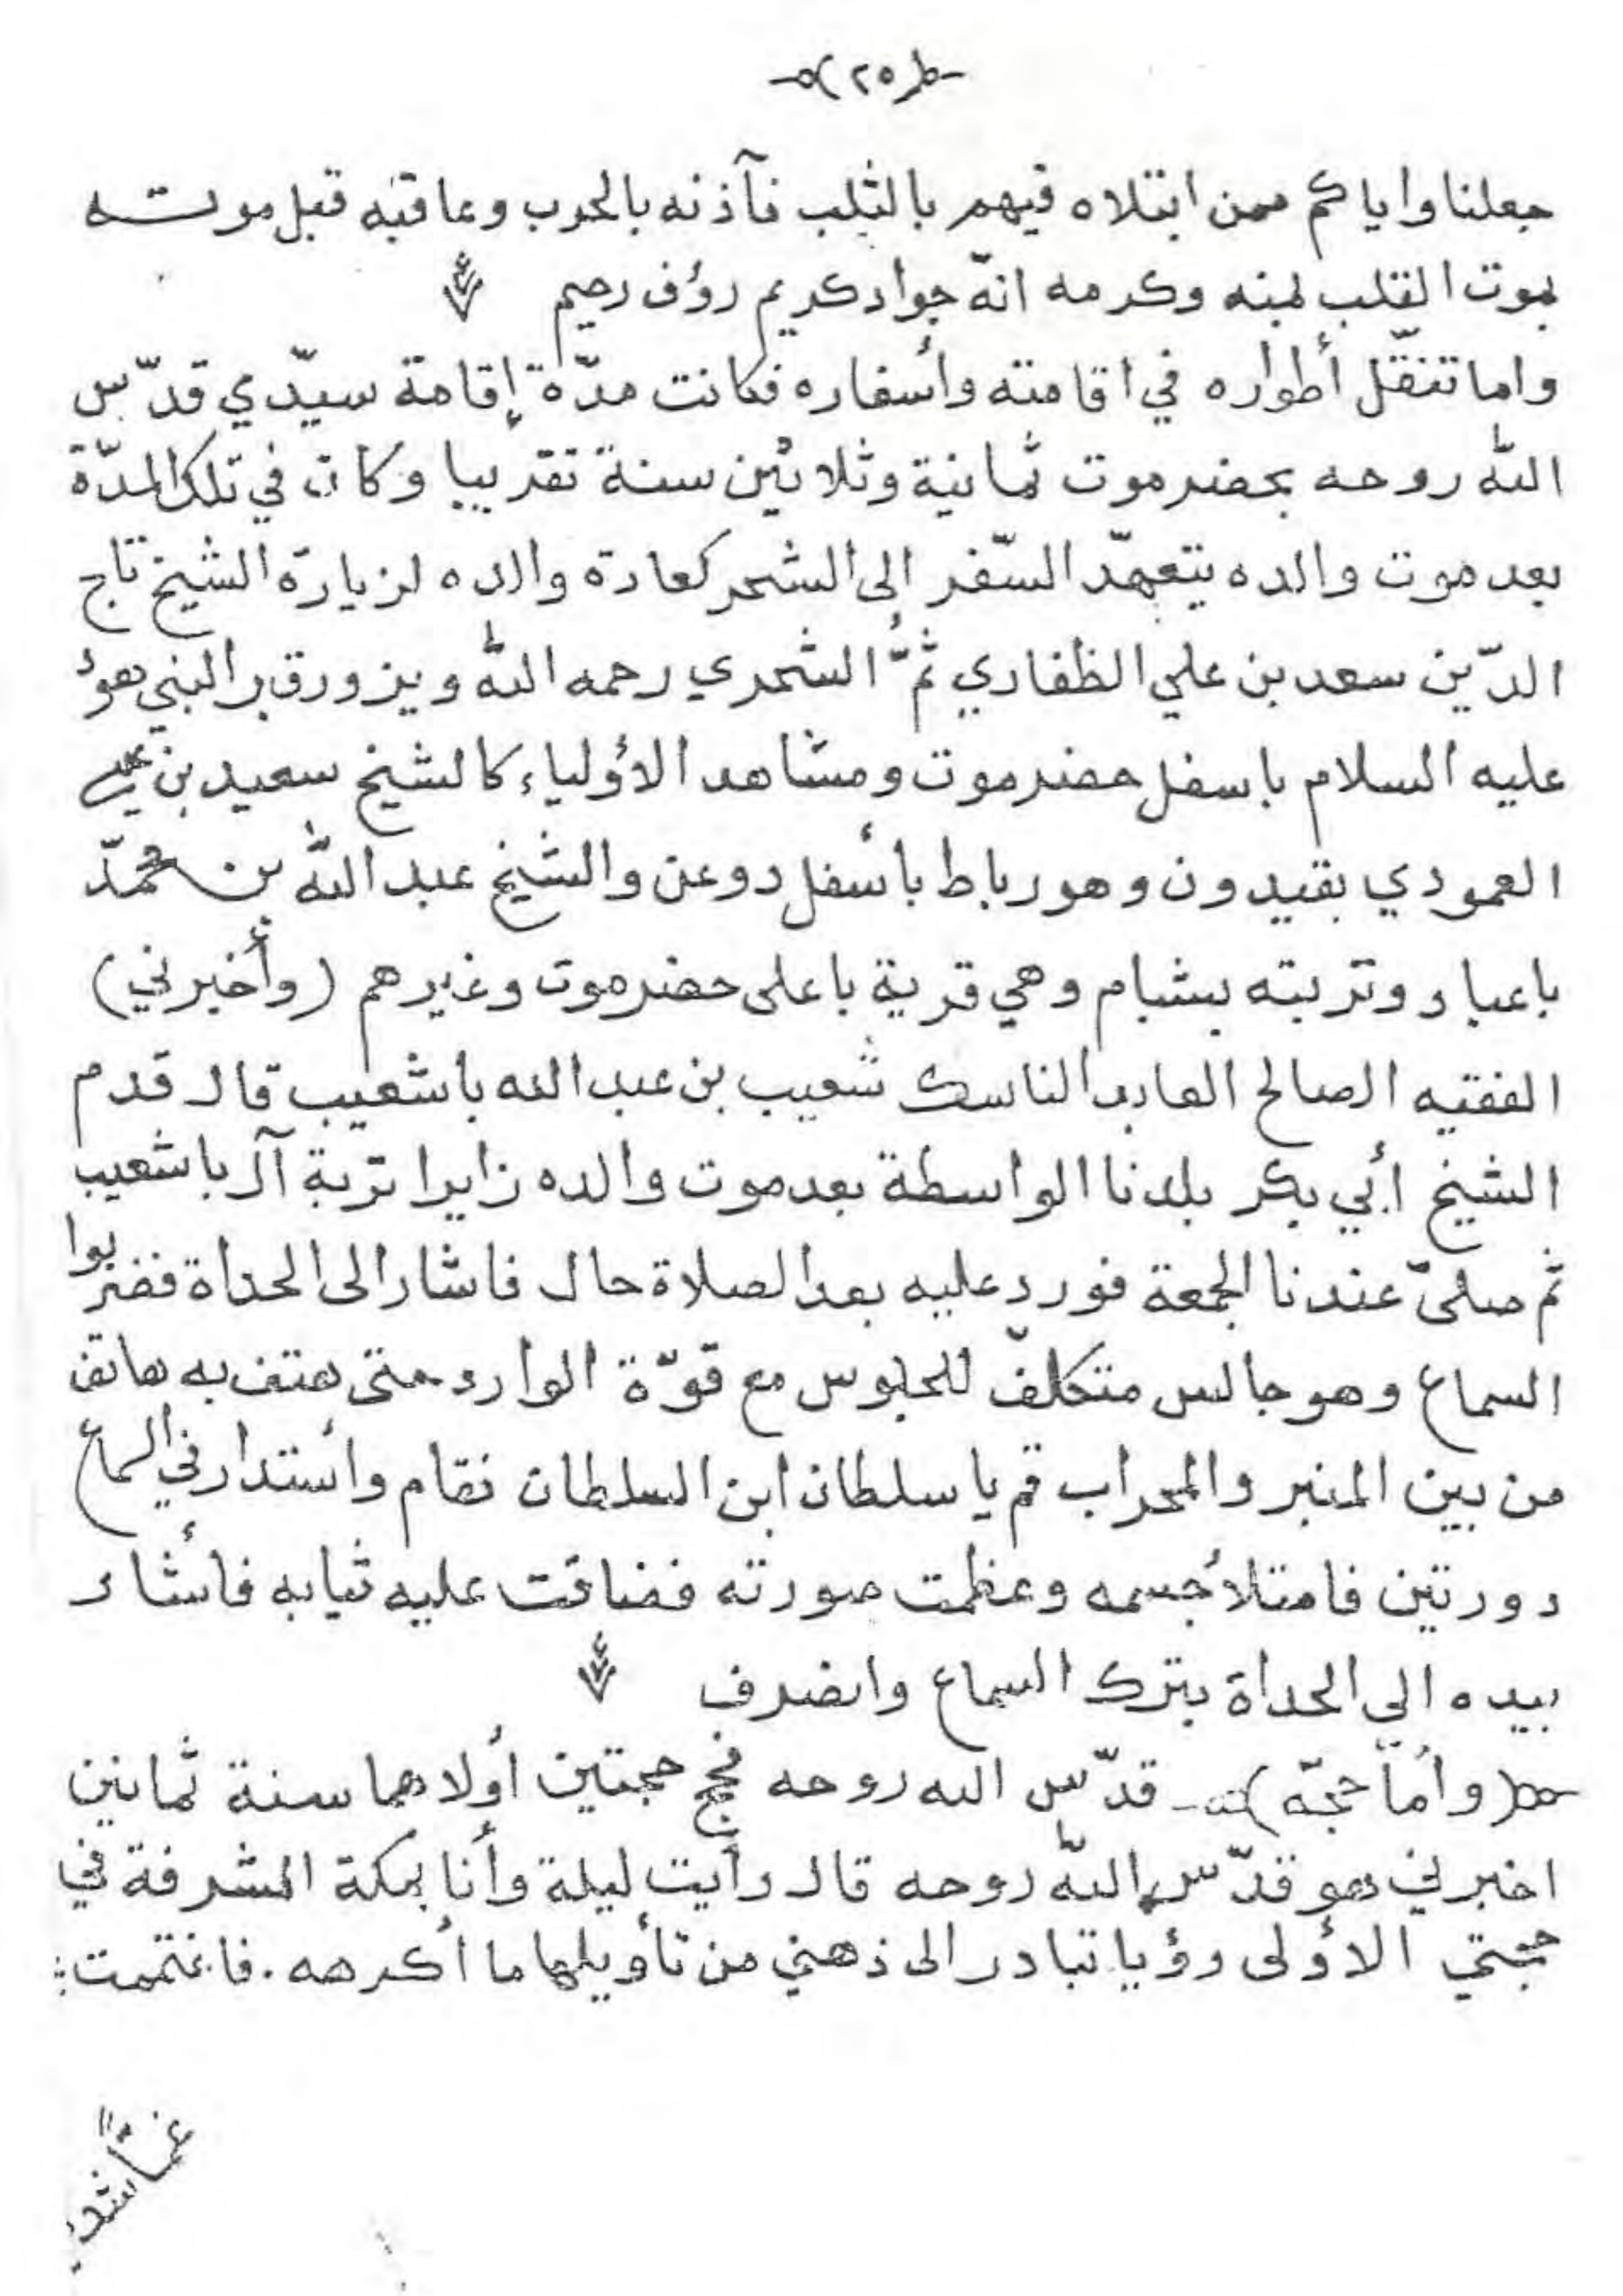 (٢٥)
جعلنا واياكم ممن ابتلاه فيهم بالثلب فآذنه بالحرب وعاقبه قبل موته
بموت القلب بمنه وكرمه انّه جواد كريم رؤف رحيم
واما تنقّل أطواره في اقامته وأسفاره فكانت مدّة إقامة سيّدي قدّس
اللّٰه روحه بحضرموت ثمانية وثلاثين سنة تقريبا وكان في تلك المدّة
بعد موت والده يتعهّد السّفر الى الشحر كعادة والده لزيارة الشيخ تاج
الدّين سعد بن علي الظفاري ثمَّ الشحري رحمه اللّٰه ويزور قبر النبي هوْد
عليه السلام باسفل حضرموت ومشاهد الأولياء كالشيخ سعيد بن عيسى
العمودي بقيدون وهو رباط بأسفل دوعن والشيخ عبد اللّٰه بن محمّد
باعباد وتربته بشبام وهي قرية باعلى حضرموت وغيرهم (وأخبرني)
الفقيه الصالح العابد الناسك شعيب بن عبد الله باشعيب قال قدم
الشيخ أبي بكر بلدنا الواسطة بعد موت والده زايرا تربة آل باشعيب
ثم صلىّ عندنا الجمعة فورد عليه بعد الصلاة حال فاشار الى الحداة فضربوا
السماع وهو جالس متكلفّ للجلوس مع قوّة الوارد حتى هتف به هاتف
من بين المنبر والمحراب قم يا سلطان ابن السلطان فقام وأستدار في السماع
دورتين فامتلأ جسمه وعظمت صورته فضاقت عليه ثيابه فأشار
بيده الي الحداة بترك السماع وانصرف
(وأمّا حجّه) قدّس الله روحه فحج حجتين أولاهما سنة ثمانين
اخبرني هو قدّس اللّٰه روحه قال رأيت ليلة وأنا بمكة المشرفة في
حجتي الأولى رؤيا تبادر الى ذهني من تأويلها ما أكرهه. فاغتممت:
غمّاً شد